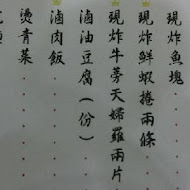 現炸魚塊
現炸鮮蝦捲兩條
現炸牛蒡天婦羅兩片
滷油豆腐(份)
滷肉飯
燙青菜